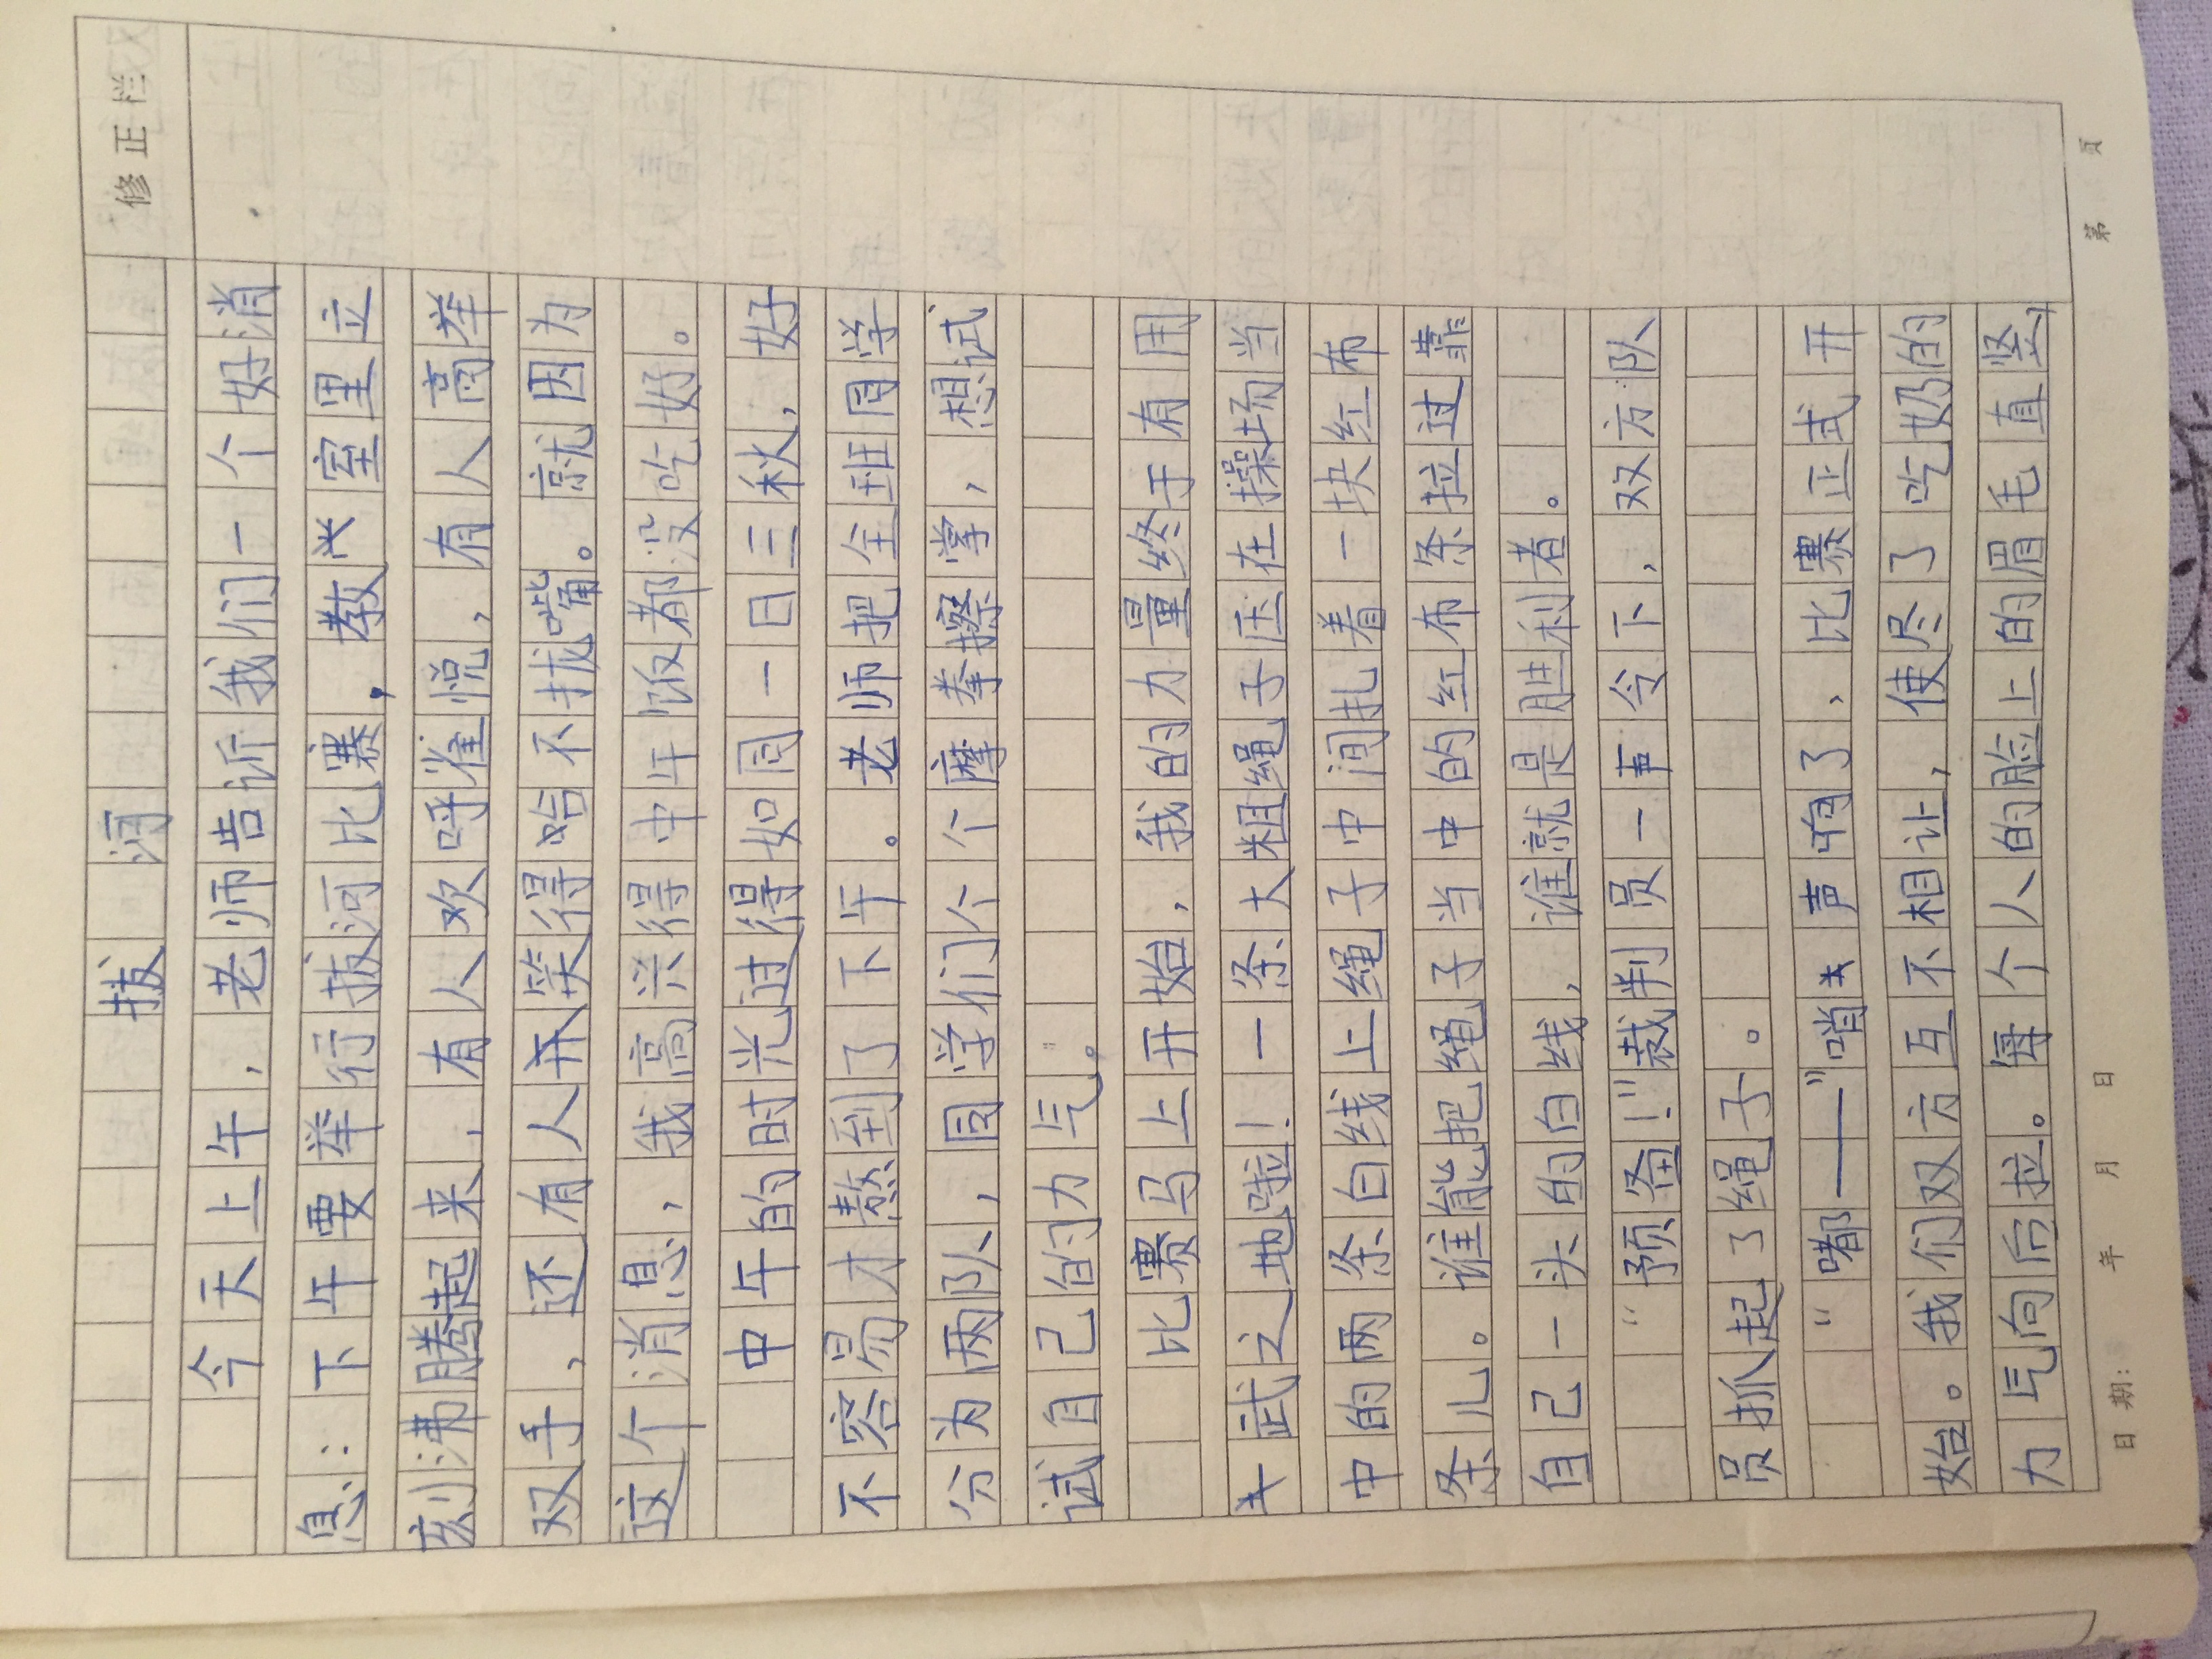 修正栏
拔河
今天上午，老师告诉我们一个好消
息：下午要举行拔河比赛，教室里立
刻沸腾起来，有人欢呼雀悦，有人高举
双手，还有人笑得哈不拢嘴。就因为
这个消息，我高兴得中午饭都没吃好。
中午的时光过得如同一日三秋，好
不容易才熬到了下午。老师把全班同学
分为两队，同学们个个摩拳擦掌，想试
试自己的力气。
比赛马上开始，我的力量终于有用
武之地啦！一条大粗绳子压在操场当
中的两条白线上绳子中间扎着一块红布
条儿。谁能把绳子当中的红布条拉过靠
自己一头的白线，谁就是胜利者。
“预备！”裁判员一声令下，双方队
员抓起了绳子。
“嘟——”哨声响了，比赛正式开
始。我们双方互不相让，使尽了吃奶的
力气向后拉。每个人的脸上的眉毛直竖，
日期： 年 月 日 第 页